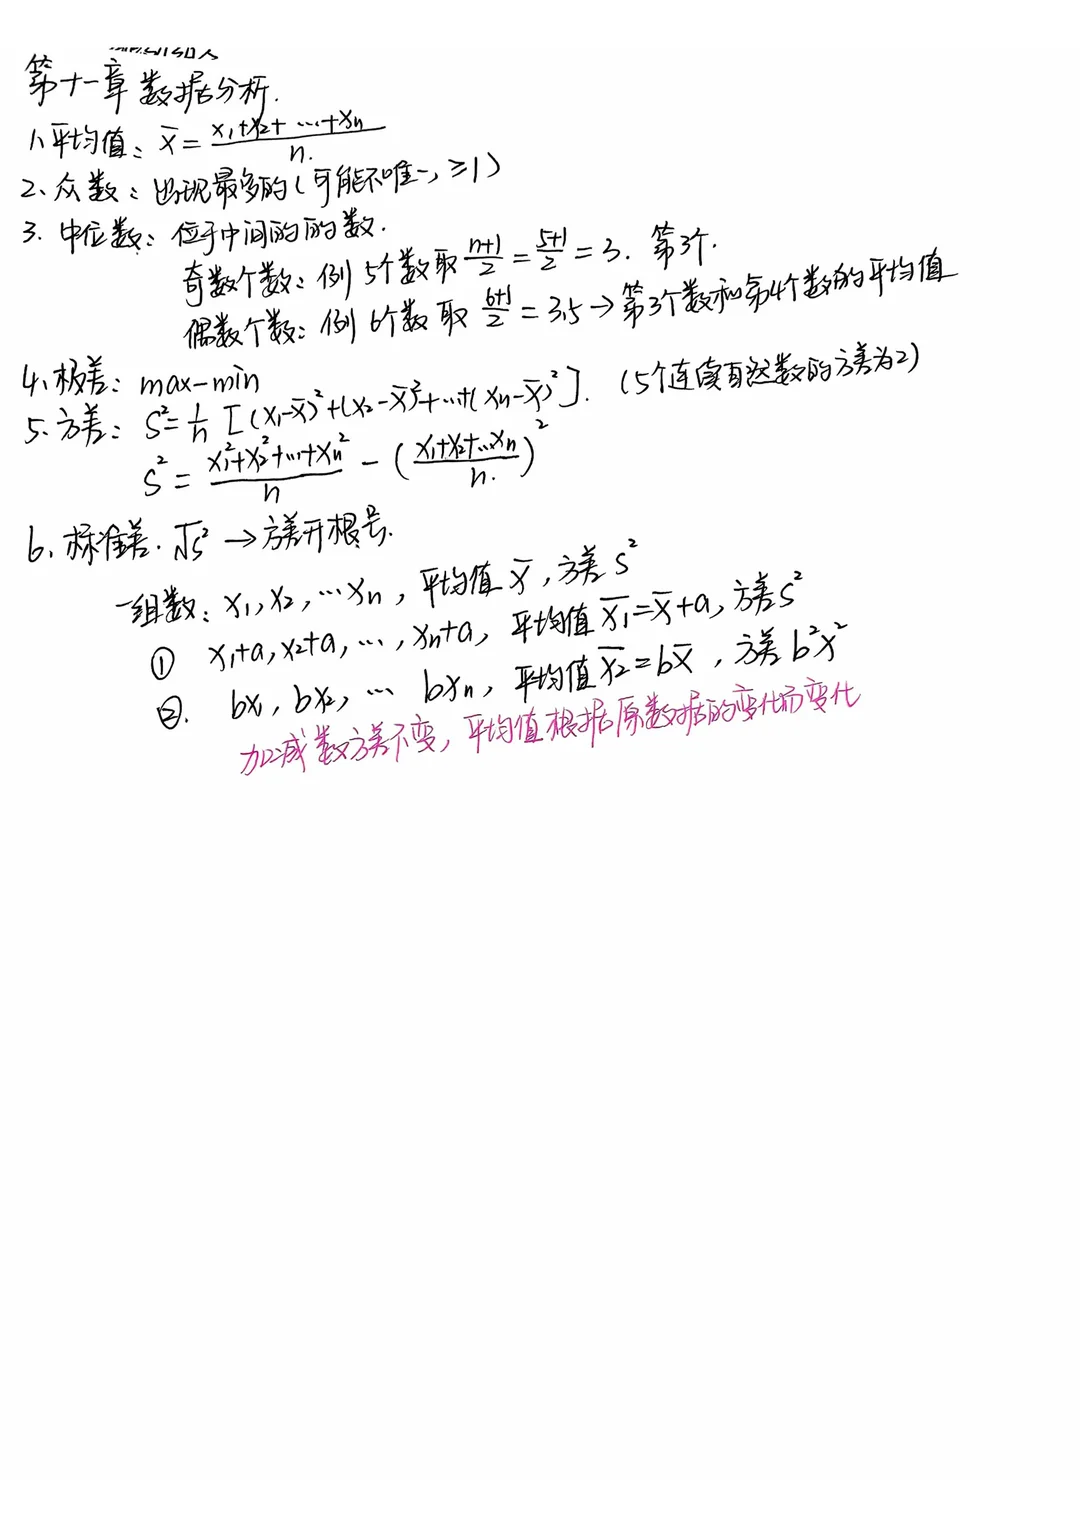 第十一章 数据分析.
1、平均值: x̄ = (x₁+x₂+…+xₙ)/n.
2、众数: 出现最多的(可能不唯一, ≥1)
3. 中位数: 位于中间的的数.
奇数个数: 例 5个数取 (n+1)/2 = (5+1)/2 = 3. 第3个.
偶数个数: 例 6个数取 (6+1)/2 = 3.5 → 第3个数和第4个数的平均值
4、极差: max-min
5、方差: S² = 1/n [(x₁-x̄)²+(x₂-x̄)²+…+(xₙ-x̄)²]. (5个连续自然数的方差为2)
S² = (x₁²+x₂²+…+xₙ²)/n - ((x₁+x₂+…xₙ)/n.)²
6、标准差. √S² → 方差开根号.
一组数: x₁, x₂, …xₙ, 平均值 x̄, 方差 S²
① x₁+a, x₂+a, …, xₙ+a, 平均值 x̄₁=x̄+a, 方差S²
②. bx₁, bx₂, … bxₙ, 平均值 x̄₂=bx̄, 方差 b²x²
加减数方差不变, 平均值根据原数据的变化而变化